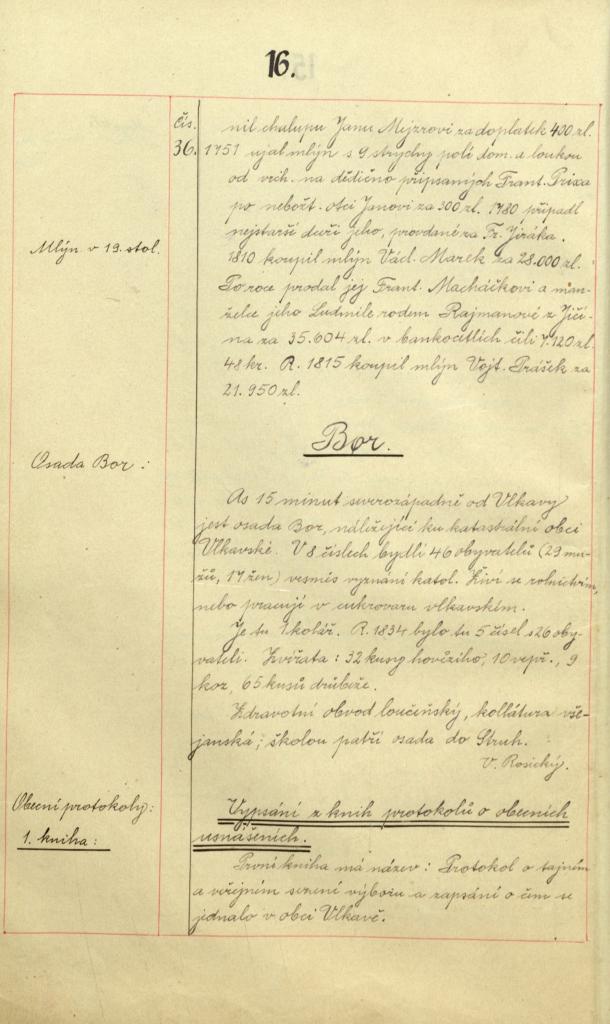 16.
čís.
36.
nil chalupu Janu Mejzrovi za doplatek 400 zl.
1751 ujal mlýn s 9 strychy polí dom. a loukou
od vrch. na dědično připsaných Frant. Prixa
po nebožt. otci Janovi za 300 zl. 1780 připadl
nejstarší dceři jeho, provdané za Fr. Jiráka.
Mlýn v 19. stol.
1810 koupil mlýn Václ. Marek za 28.000 zl.
Po roce prodal jej Frant. Macháčkovi a man-
želce jeho Ludmile rodem Rajmanové z Jičí-
na za 35.604 zl. v bankocetlích čili 7.120 zl
48 kr. R. 1815 koupil mlýn Vojt. Prášek za
21.950 zl.
Bor.
Osada Bor:
As 15 minut severozápadně od Vlkavy
jest osada Bor, náležející ku katastrální obci
Vlkavské. V 8 číslech bydlí 46 obyvatelů (29 mu-
žů, 17 žen) vesměs vyznání katol. Živí se rolnictvím,
nebo pracují v cukrovaru vlkavském.
Je tu 1 kolář. R. 1834 bylo tu 5 čísel s 26 oby-
vateli. Zvířata: 32 kusy hovězího, 10 vepř., 9
koz, 65 kusů drůbeže.
Zdravotní obvod loučeňský, kollatura vše-
janská; školou patří osada do Struh.
V. Rosický.
Obecní protokoly:
1. kniha:
Vypsání z knih protokolů o obecních
usnášeních.
První kniha má název: Protokol o tajném
a veřejném sezení výboru a zapsání o čem se
jednalo v obci Vlkavě.